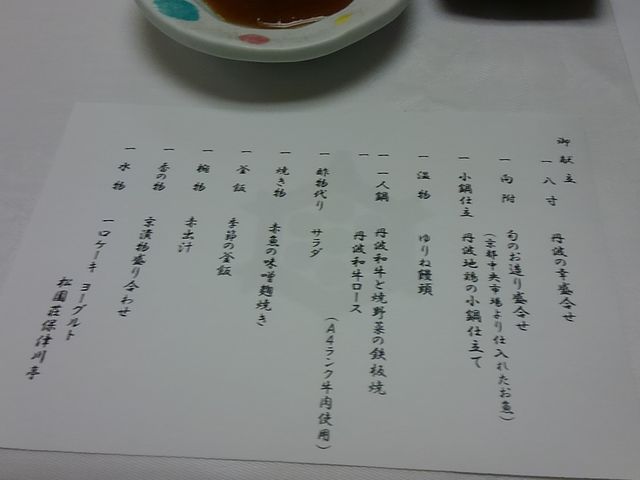 御献立
一 八寸 丹波の幸盛合せ
一 向附 旬のお造り盛合せ
（京都中央市場より仕入れたお魚）
一 小鍋仕立 丹波地鶏の小鍋仕立て
一 温物 ゆりね饅頭
一 一人鍋 丹波和牛と焼野菜の鉄板焼
一 丹波和牛ロース
（A4ランク牛肉使用）
一 酢物代り サラダ
一 焼き物 赤魚の味噌麹焼き
一 釜飯 季節の釜飯
一 椀物 赤出汁
一 香の物 京漬物盛り合わせ
一 水物 一口ケーキ ヨーグルト
松園荘保津川亭